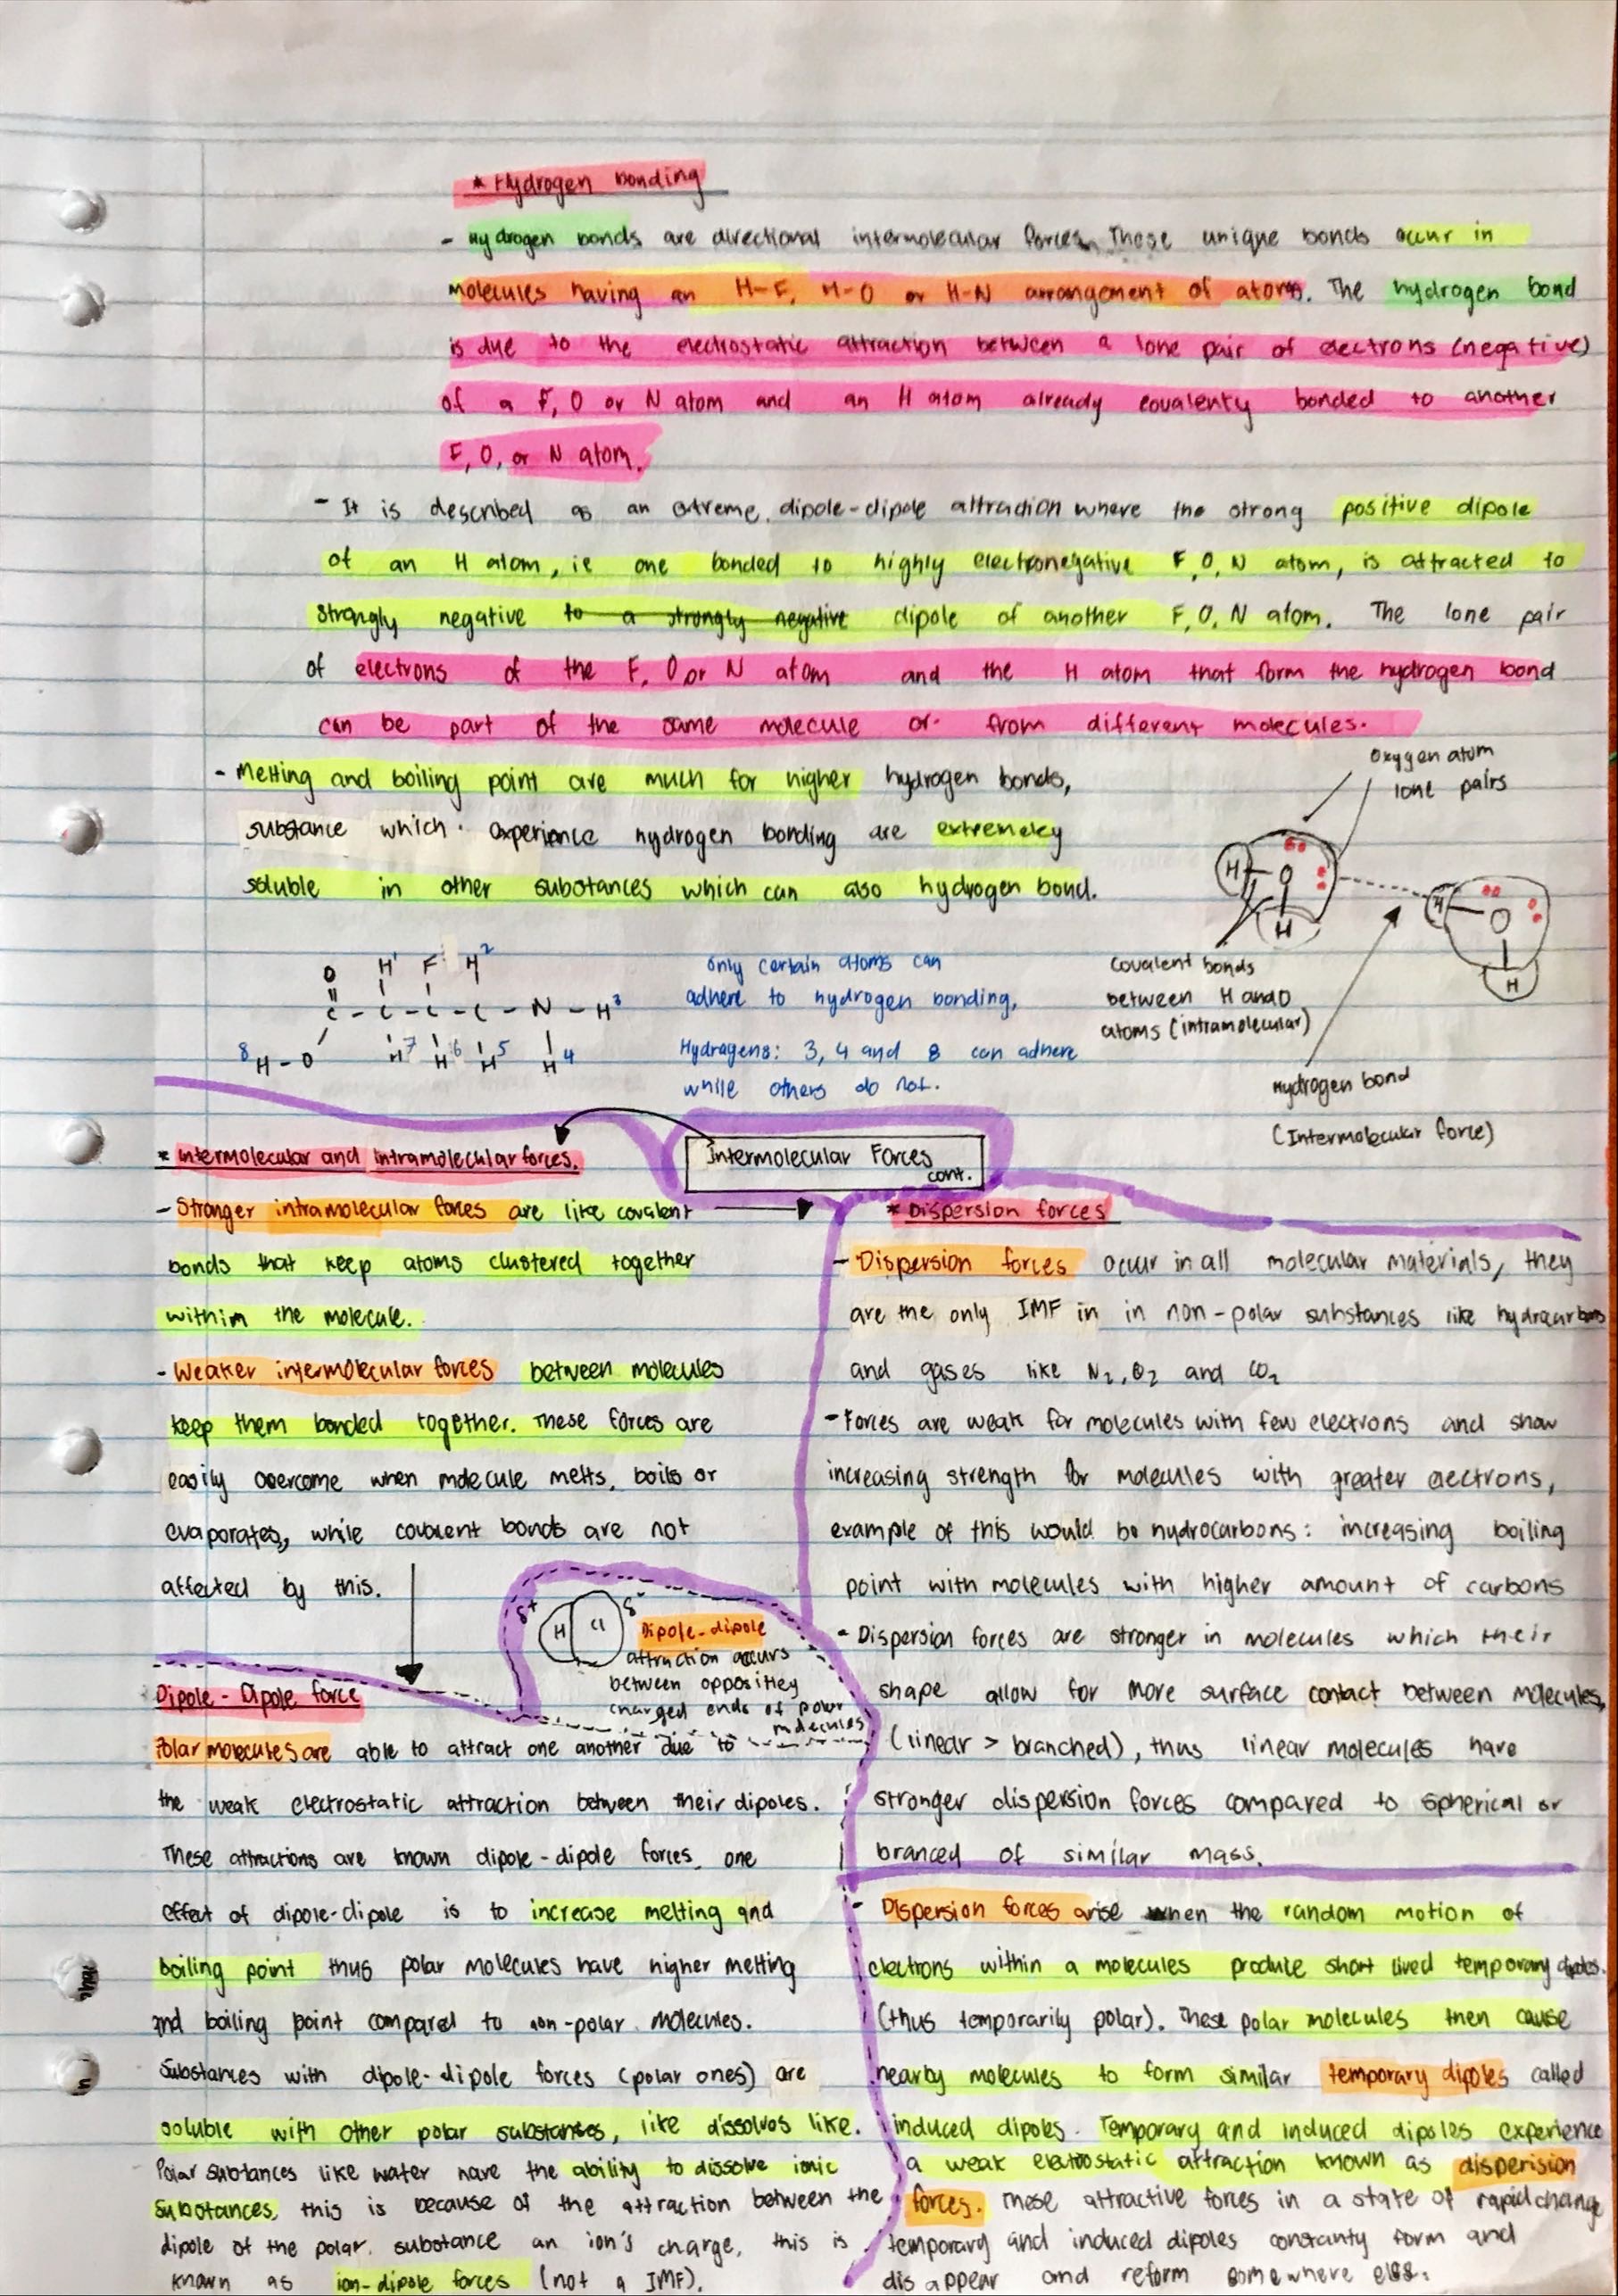 * Hydrogen bonding
- Hydrogen bonds are directional intermolecular forces. These unique bonds occur in
molecules having an H-F, H-O or H-N arrangement of atoms. The hydrogen bond
is due to the electrostatic attraction between a lone pair of electrons (negative)
of a F, O or N atom and an H atom already covalenty bonded to another
F, O, or N atom.
- It is described as an extreme dipole-dipole attraction where the strong positive dipole
of an H atom, ie one bonded to highly electronegative F, O, N atom, is attracted to
strongly negative to a strongly negative dipole of another F, O, N atom. The lone pair
of electrons of the F, O or N atom and the H atom that form the hydrogen bond
can be part of the same molecule or from different molecules.
- Melting and boiling point are much for higher hydrogen bonds,
substance which experience hydrogen bonding are extremeley
soluble in other substances which can also hydrogen bond.
oxygen atom
lone pairs
H - O
H
H - O
H
covalent bonds
between H and O
atoms (intramolecular)
Hydrogen bond
(Intermolecular force)
O H1 F H2
C - C - C - C - N - H3
8 H - O H7 H6 H5 H4
only certain atoms can
adhere to hydrogen bonding,
Hydrogens: 3, 4 and 8 can adhere
while others do not.
Intermolecular Forces
cont.
* Intermolecular and intramolecular forces.
- Stronger intramolecular forces are like covalent
bonds that keep atoms clustered together
within the molecule.
- Weaker intermolecular forces between molecules
keep them bonded together. These forces are
easily overcome when molecule melts, boils or
evaporates, while covalent bonds are not
affected by this.
δ+ H Cl δ-
Dipole-dipole
attraction occurs
between oppositley
charged ends of polar
molecules
Dipole - Dipole force
Polar molecules are able to attract one another due to
the weak electrostatic attraction between their dipoles.
These attractions are known dipole-dipole forces, one
effect of dipole-dipole is to increase melting and
boiling point thus polar molecules have higher melting
and boiling point compared to non-polar molecules.
Substances with dipole-dipole forces (polar ones) are
soluble with other polar substances, like dissolves like.
Polar substances like water have the ability to dissolve ionic
substances, this is because of the attraction between the
dipole of the polar substance an ion's charge, this is
known as ion-dipole forces (not a IMF).
* Dispersion forces
- Dispersion forces occur in all molecular materials, they
are the only IMF in in non-polar substances like hydrocarbons
and gases like N2, O2 and CO2
- Forces are weak for molecules with few electrons and show
increasing strength for molecules with greater electrons,
example of this would be hydrocarbons: increasing boiling
point with molecules with higher amount of carbons
- Dispersion forces are stronger in molecules which their
shape allow for more surface contact between molecules,
(linear > branched), thus linear molecules have
stronger dispersion forces compared to spherical or
branced of similar mass.
- Dispersion forces arise when the random motion of
electrons within a molecules produce short lived temporary dipoles.
(thus temporarily polar). These polar molecules then cause
nearby molecules to form similar temporary dipoles called
induced dipoles. Temporary and induced dipoles experience
a weak electrostatic attraction known as disperision
forces. These attractive forces in a state of rapid change
temporary and induced dipoles constanty form and
disappear and reform somewhere else.